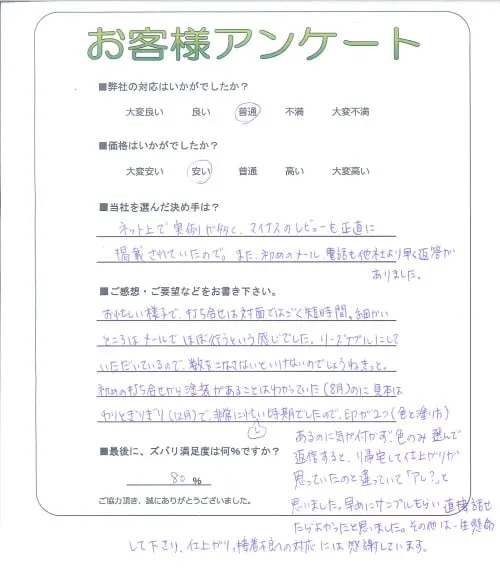 お客様アンケート
■弊社の対応はいかがでしたか？
大変良い 良い 普通 不満 大変不満
■価格はいかがでしたか？
大変安い 安い 普通 高い 大変高い
■当社を選んだ決め手は？
ネット上で実例が多く、マイナスのレビューも正直に
掲載されていたので。また、初めのメール、電話も他社より早く返答が
ありました。
■ご感想・ご要望などをお書き下さい。
お忙しい様子で、打ち合せは対面ではごく短時間。細かい
ところはメールでほぼ行うという感じでした。リーズナブルにして
いただいているので、数をこなさないといけないのでしょうねきっと。
初めの打ち合せから塗装があることはわかっていた(8月)のに見本は
わりとぎりぎり(12月)で、非常に忙しい時期でしたので、印が2つ(色と塗り方)
あるのに気が付かず、色のみ選んで
返信すると、り帰宅して仕上がりが
思っていたのと違っていて「アレ？」と
思いました。早めにサンプルもらい直接話せ
たらよかったと思いました。その他は一生懸命
して下さり、仕上がり、接着不良への対応には感謝しています。
■最後に、ズバリ満足度は何%ですか？
80 %
ご協力頂き、誠にありがとうございました。